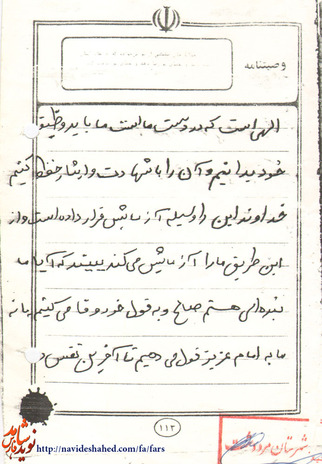 وصیتنامه
الهی است که در دست ماست ما باید وظیفه
خود بدانیم و آن را با شهادت و ایثار حفظ کنیم
خداوند این را وسیله آزمایش قرار داده است و از
این طریق ما را آزمایش می کند ببیند که آیا ما
بنده ای هستیم صالح و به قول خود وفا می کنیم یا نه
ما به امام عزیز قول می دهیم تا آخرین نفس و
(۱۱۳)
نوید شاهد فارس
http://navideshahed.com/fa/fars
شهرستان مرودشت